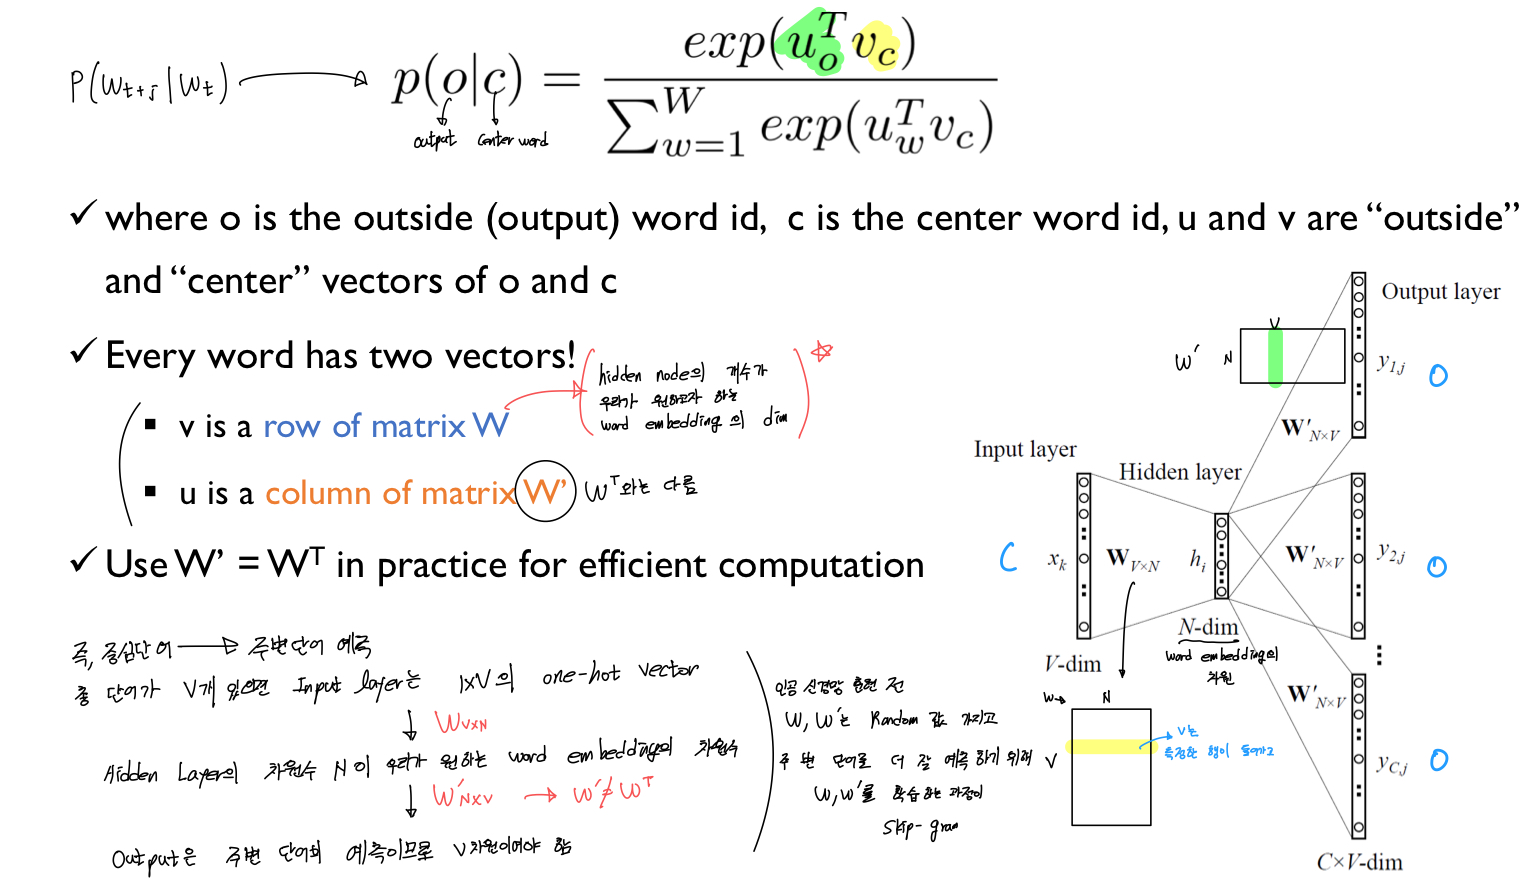 P(w_{t+j} | w_t) → p(o|c) = \frac{exp(u_o^T v_c)}{\sum_{w=1}^{W} exp(u_w^T v_c)}
output center word
✓ where o is the outside (output) word id, c is the center word id, u and v are “outside”
and “center” vectors of o and c
✓ Every word has two vectors!
▪ v is a row of matrix W
hidden node의 개수가
우리가 원하고자 하는
word embedding의 dim
▪ u is a column of matrix W’
W^T와는 다름
✓ Use W’ = W^T in practice for efficient computation
즉, 중심단어 → 주변단어 예측
총 단어가 V개 있으면 Input layer는 1×V의 one-hot vector
↓ W_{V×N}
Hidden Layer의 차원수 N이 우리가 원하는 word embedding의 차원수
↓ W'_{N×V} → W' ≠ W^T
Output은 주변 단어의 예측이므로 V차원이어야 함
인공 신경망 훈련 전
W, W'는 Random 값 가지고
주변 단어를 더 잘 예측하기 위해
W, W'를 학습하는 과정이
Skip-gram
Output layer
V
W' N
y_{1,j} O
W'_{N×V}
Input layer
Hidden layer
C x_k W_{V×N} h_i W'_{N×V} y_{2,j} O
N-dim
word embedding의
차원
V-dim
W'_{N×V}
W→ N
V
v는
특정한 행이 들어가고
y_{C,j} O
C×V-dim